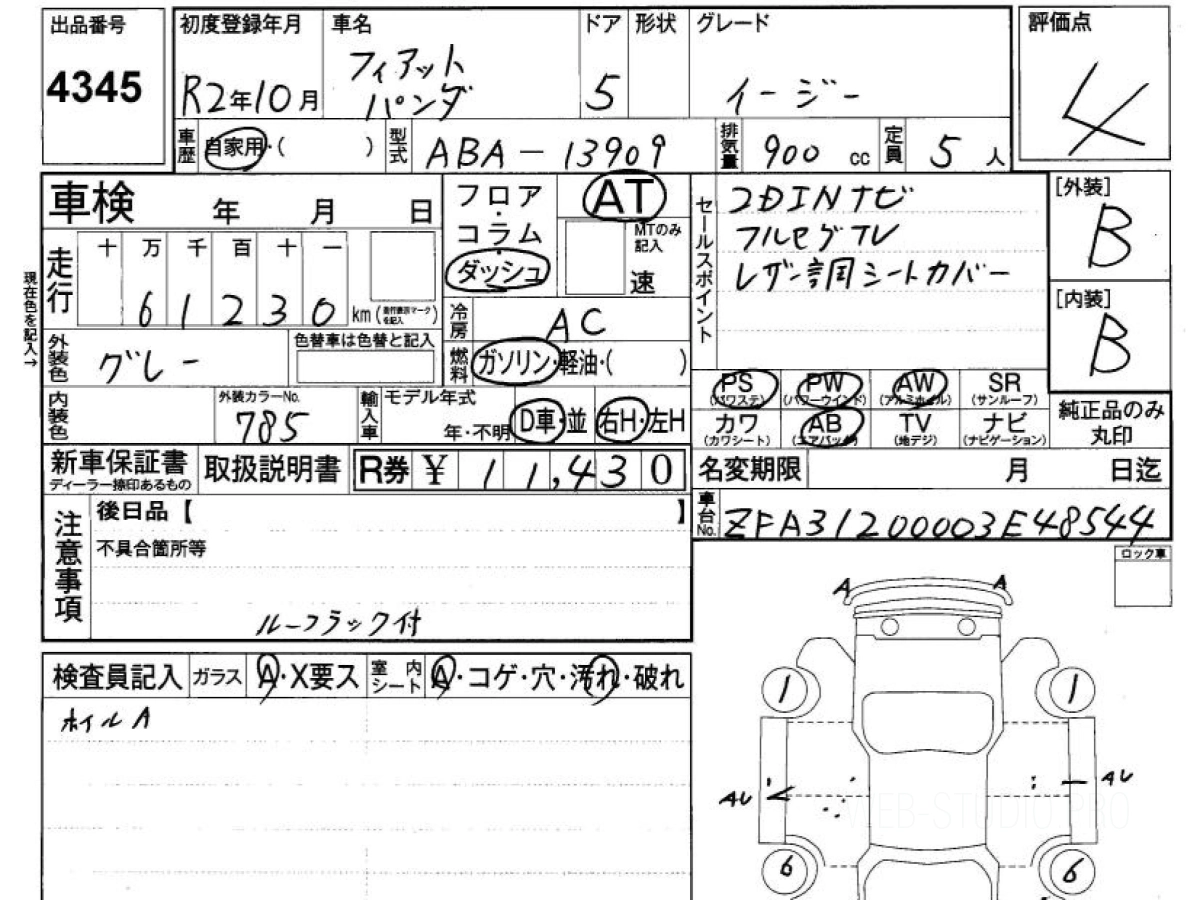 出品番号
4345
初度登録年月 車名 ドア 形状 グレード
R2年10月 フィアット パンダ 5 イージー
評価点
4
車歴 自家用・( ) 型式 ABA-13909 排気量 900 cc 定員 5 人
車検 年 月 日
フロア・コラム・ダッシュ
AT
MTのみ記入
速
セールスポイント
2DINナビ
フルセグTV
レザー調シートカバー
[外装]
B
[内装]
B
現在色を記入→
走行 十 万 千 百 十 一
6 1 2 3 0 km (走行表示マークを記入)
冷房 AC
外装色 グレー 色替車は色替と記入
燃料 ガソリン・軽油・( )
PS (パワステ) PW (パワーウインド) AW (アルミホイル) SR (サンルーフ)
カワ (カワシート) AB (エアバック) TV (地デジ) ナビ (ナビゲーション)
純正品のみ
丸印
内装色 外装カラーNo. 785 輸入車 モデル年式 年・不明 D車・並 右H・左H
新車保証書 ディーラー捺印あるもの 取扱説明書 R券 ¥ 11,430
名変期限 月 日迄
車台No. ZFA31200003E48544
注意事項
後日品【 】
不具合箇所等
ルーフラック付
ロック車
検査員記入 ガラス A・X要ス 室内シート A・コゲ・穴・汚れ・破れ
ホイルA
A A
1 1
AU AU
WEB-STUDIO.PRO
6 6